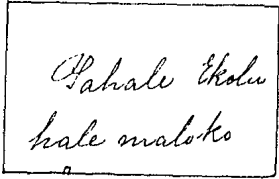 Pahale Ekolu
hale maloko